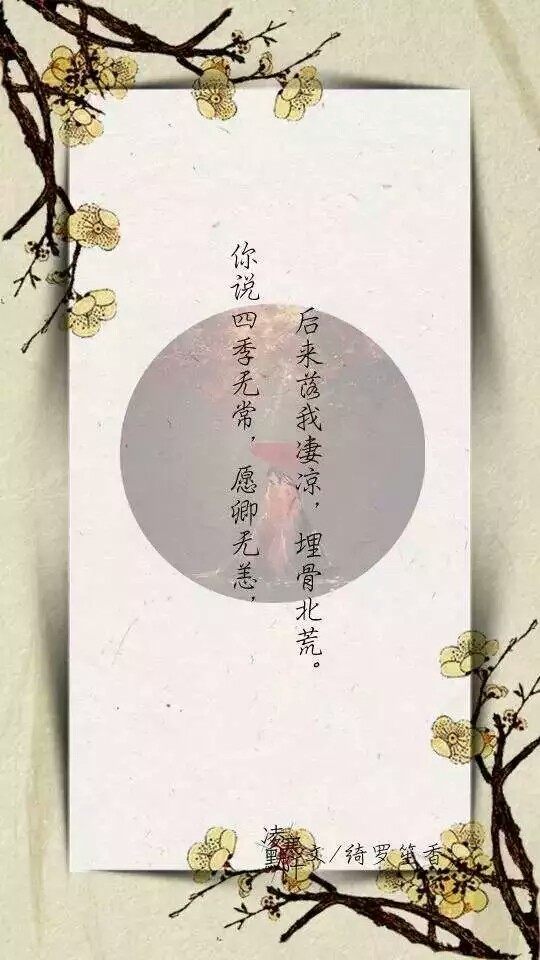 你说四季无常，愿卿无恙，
后来落我凄凉，埋骨北荒。
文/绮罗笙香